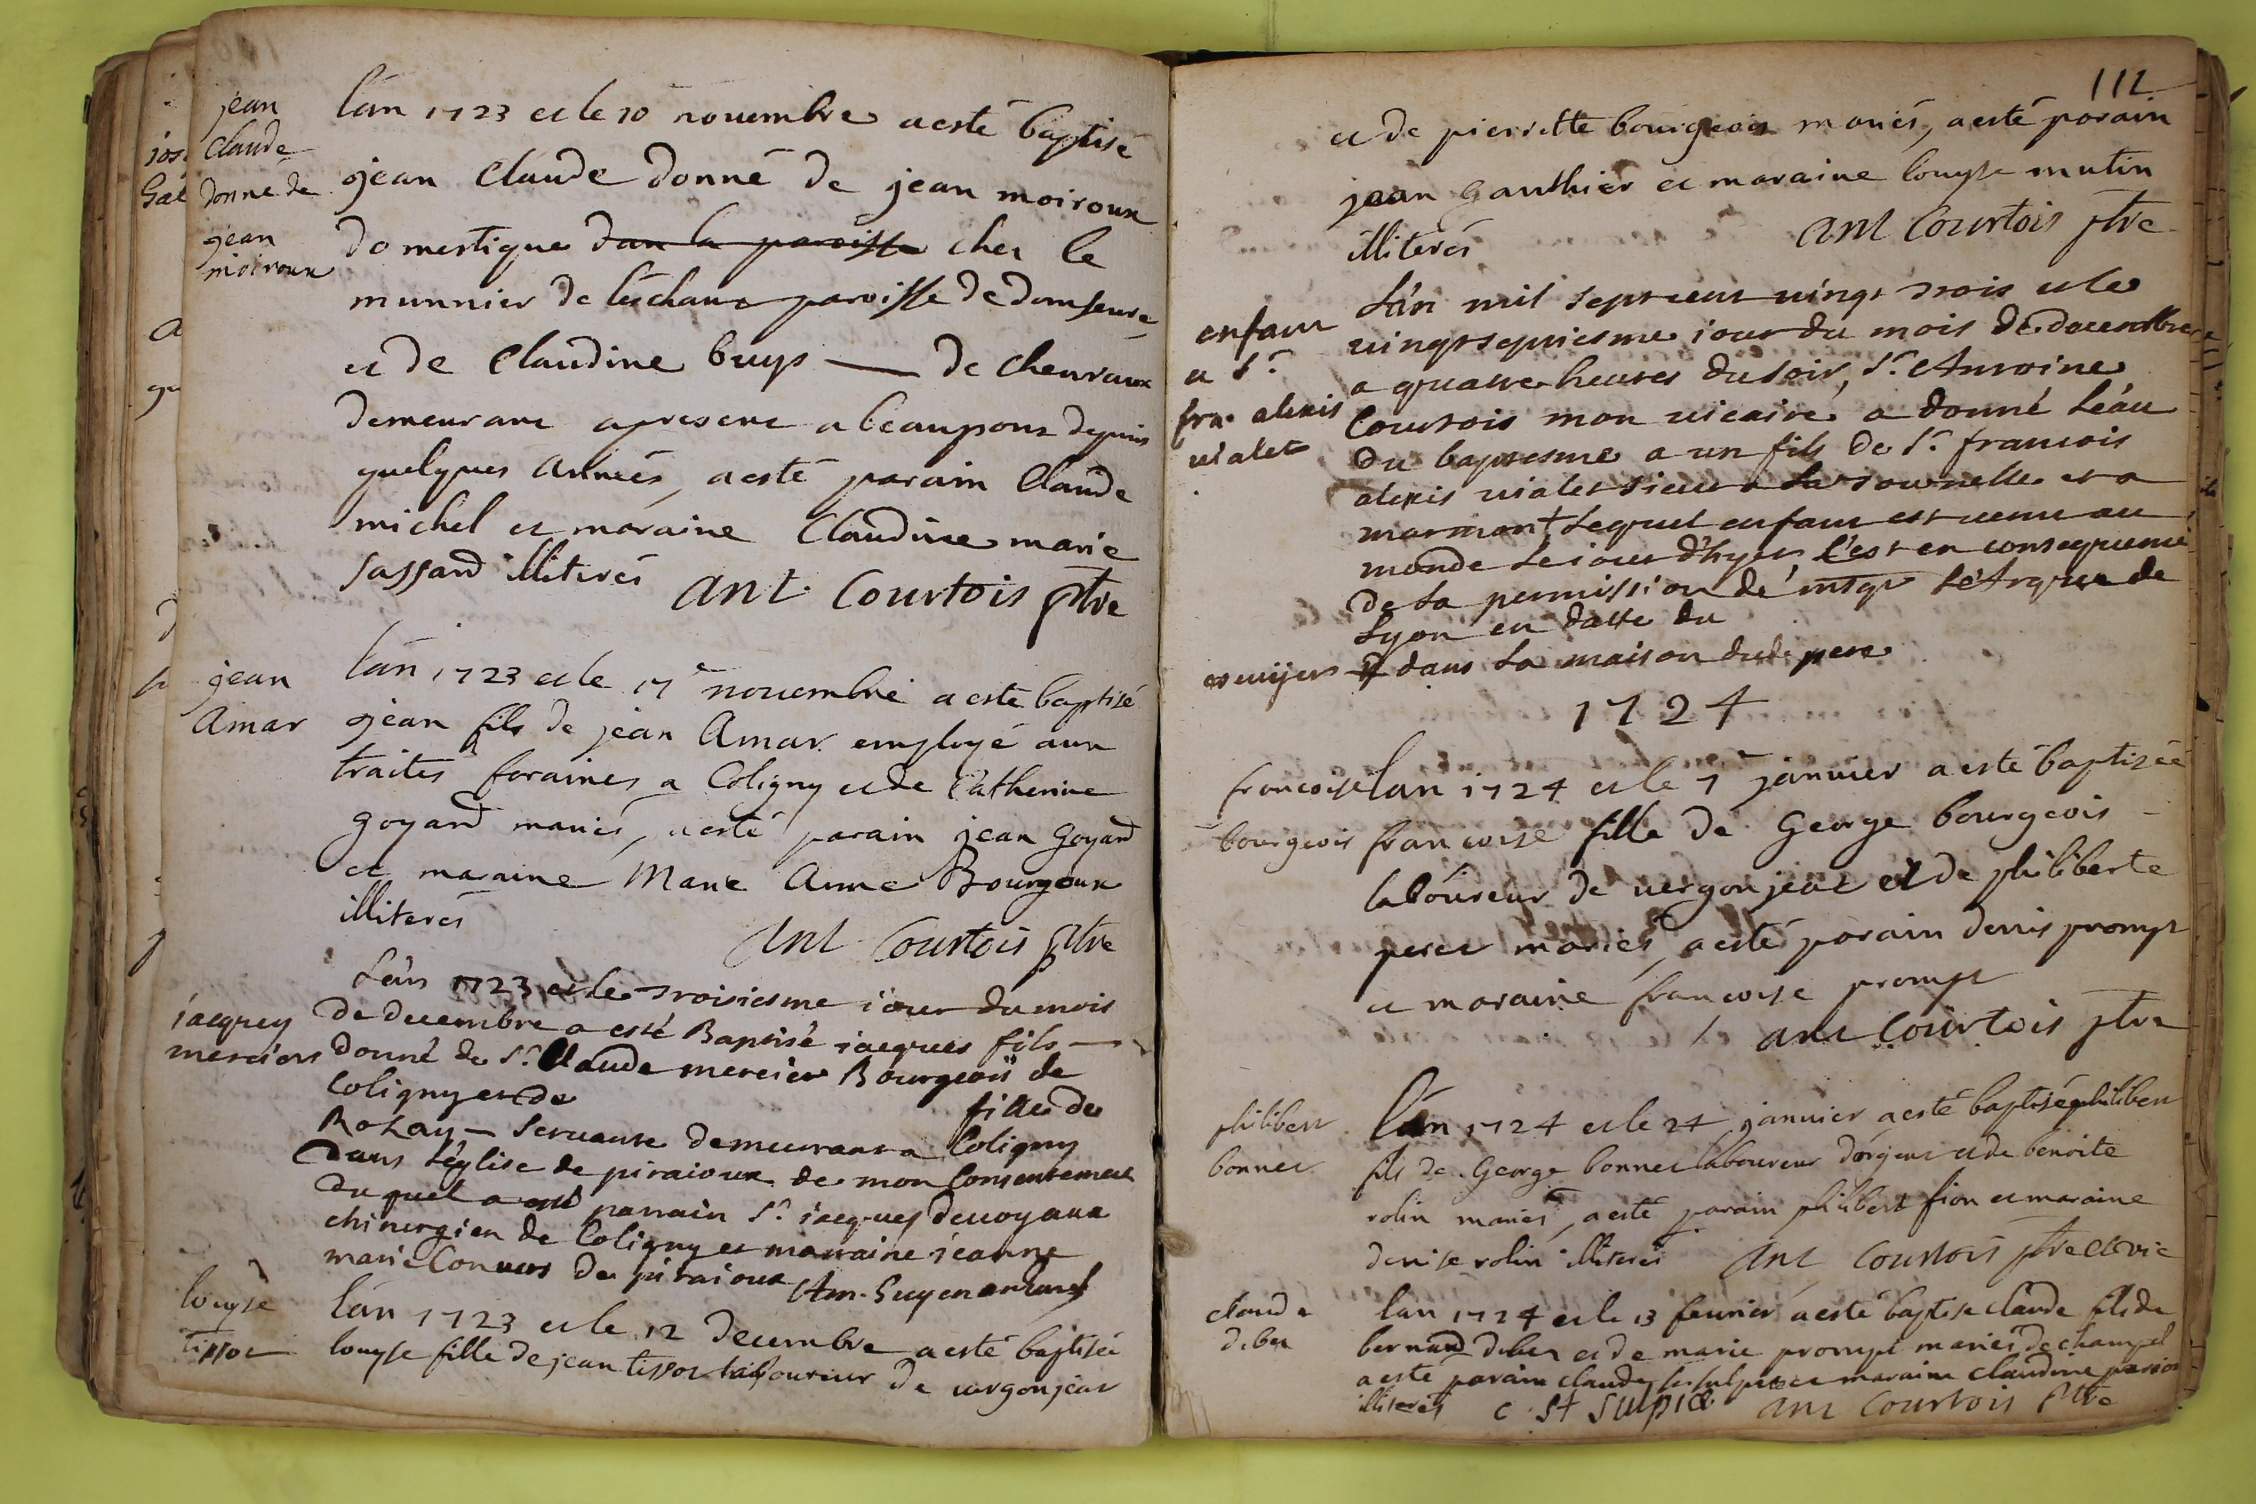 jean
Claude
donné de
jean
moiroux
lán 1723 et le 10 nouembre a esté baptisé
jean Claude donné de jean moiroux
domestique dan la paroisse ches le
munnier de léchaux paroisse de domseure
et de Claudine buys — de cheuraux
demeurant apresent a beaupont depuis
quelques années, a esté parain Claude
michel et maraine Claudine marie
sassard illiterés
Ant Courtois ptre
jean
Amar
lán 1723 et le 17e nouembre a esté baptisé
jean fils de jean Amar employé aux
traites foraines a Coligny et de Catherine
goyard mariés, a esté parain jean goyard
et maraine Marie Anne Bourgeoux
illiterés
Ant Courtois ptre
jacques
merciers
L'án 1723 et le troisiesme iour du mois
de decembre a esté Baptisé iacques fils —
donné de Sr. Claude mercier Bourgeois de
Coligny et de fille de
Rozay — seruante demeurant a Coligny
dans l'église de piraioux de mon Consentement
duquel a esté parrain Sr. iacques deuoyaux
chirurgien de Coligny et marraine ieanne
marie Conuers de piraioux
louyse
tissot
lán 1723 et le 12 decembre a esté baptisée
louyse fille de jean tissot laboureur de uergonjeat
112
et de pierrette bourgeois mariés, a esté parain
jean gauthier et maraine louyse mutin
illiterés
Ant Courtois ptre
enfant
a Sr.
fra. alexis
uialet
L'án mil sept cent uingt trois et le
uingtseptiesme iour du mois de decembre
a quatre heures du soir, Sr. Antoine
Courtois mon uicaire a donné L'éau
du baptesme a un fils de Sr. francois
alexis uialet sieur a La tournelle et a
marmont Lequel enfant est uenu au
monde Le iour d'hyer, C'est en consequence
de La permission de msgr L'Archeuesque de
Lyon en datte du
dans La maison dudt pere
1724
francoise
bourgeois
lan 1724 et le 7e januier a esté baptiséé
francoise fille de George bourgeois
labóureur de uergonjeat et de philiberte
peret mariés, a esté parain denis prompt
et maraine francoise prompt
Ant Courtois ptre
philibert
bonnet
lán 1724 et le 24 januier a esté baptisé philibert
fils de George bonnet laboureur dórjeut et de benoite
rolin mariés, a esté parain philibert fion et maraine
denise rolin illiterés Ant Courtois ptre et vic
claude
dibet
lan 1724 et le 13 feurier a esté baptise claude fils de
bernard dibet et de marie prompt mariés de champel
a esté parain claude st sulpice et maraine claudine
illiterés c St Sulpice Ant Courtois Ptre